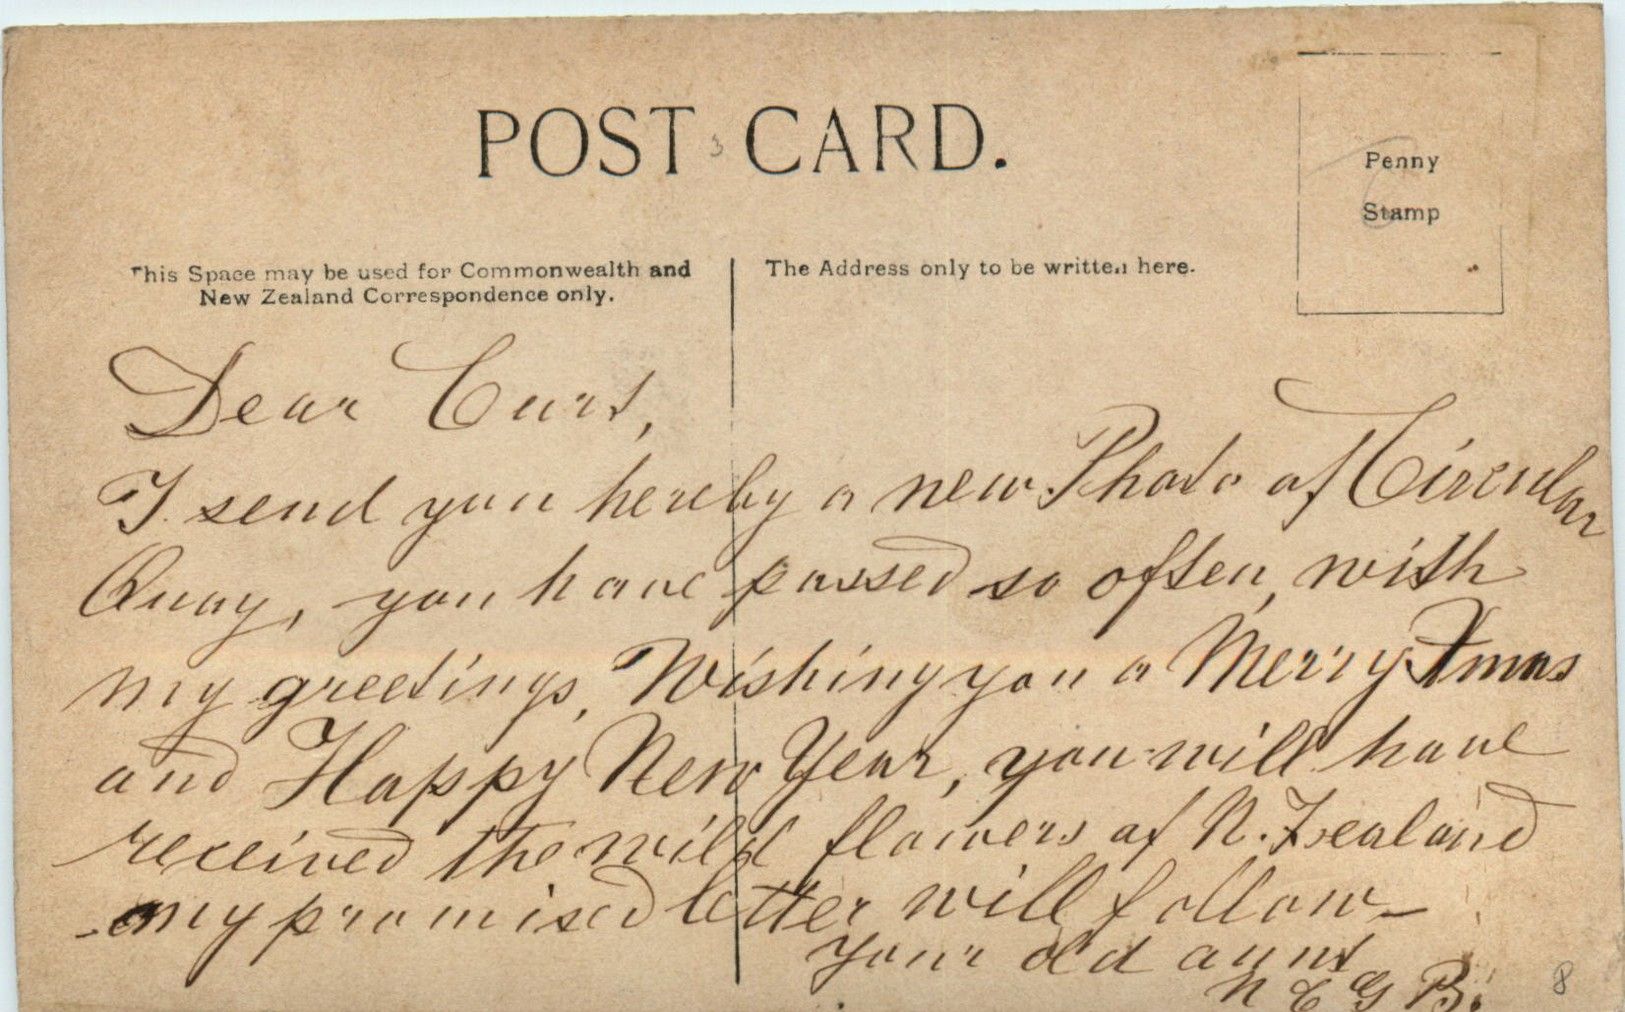 POST CARD.
Penny
Stamp
This Space may be used for Commonwealth and
New Zealand Correspondence only.
The Address only to be written here.
Dear Curt,
I send you hereby a new Photo of Circular
Quay, you have passed so often, with
my greetings, Wishing you a Merry Xmas
and Happy New Year, you will have
received the wild flowers of N. Zealand
my promised letter will follow –
Your old aunt
N E G B.
8